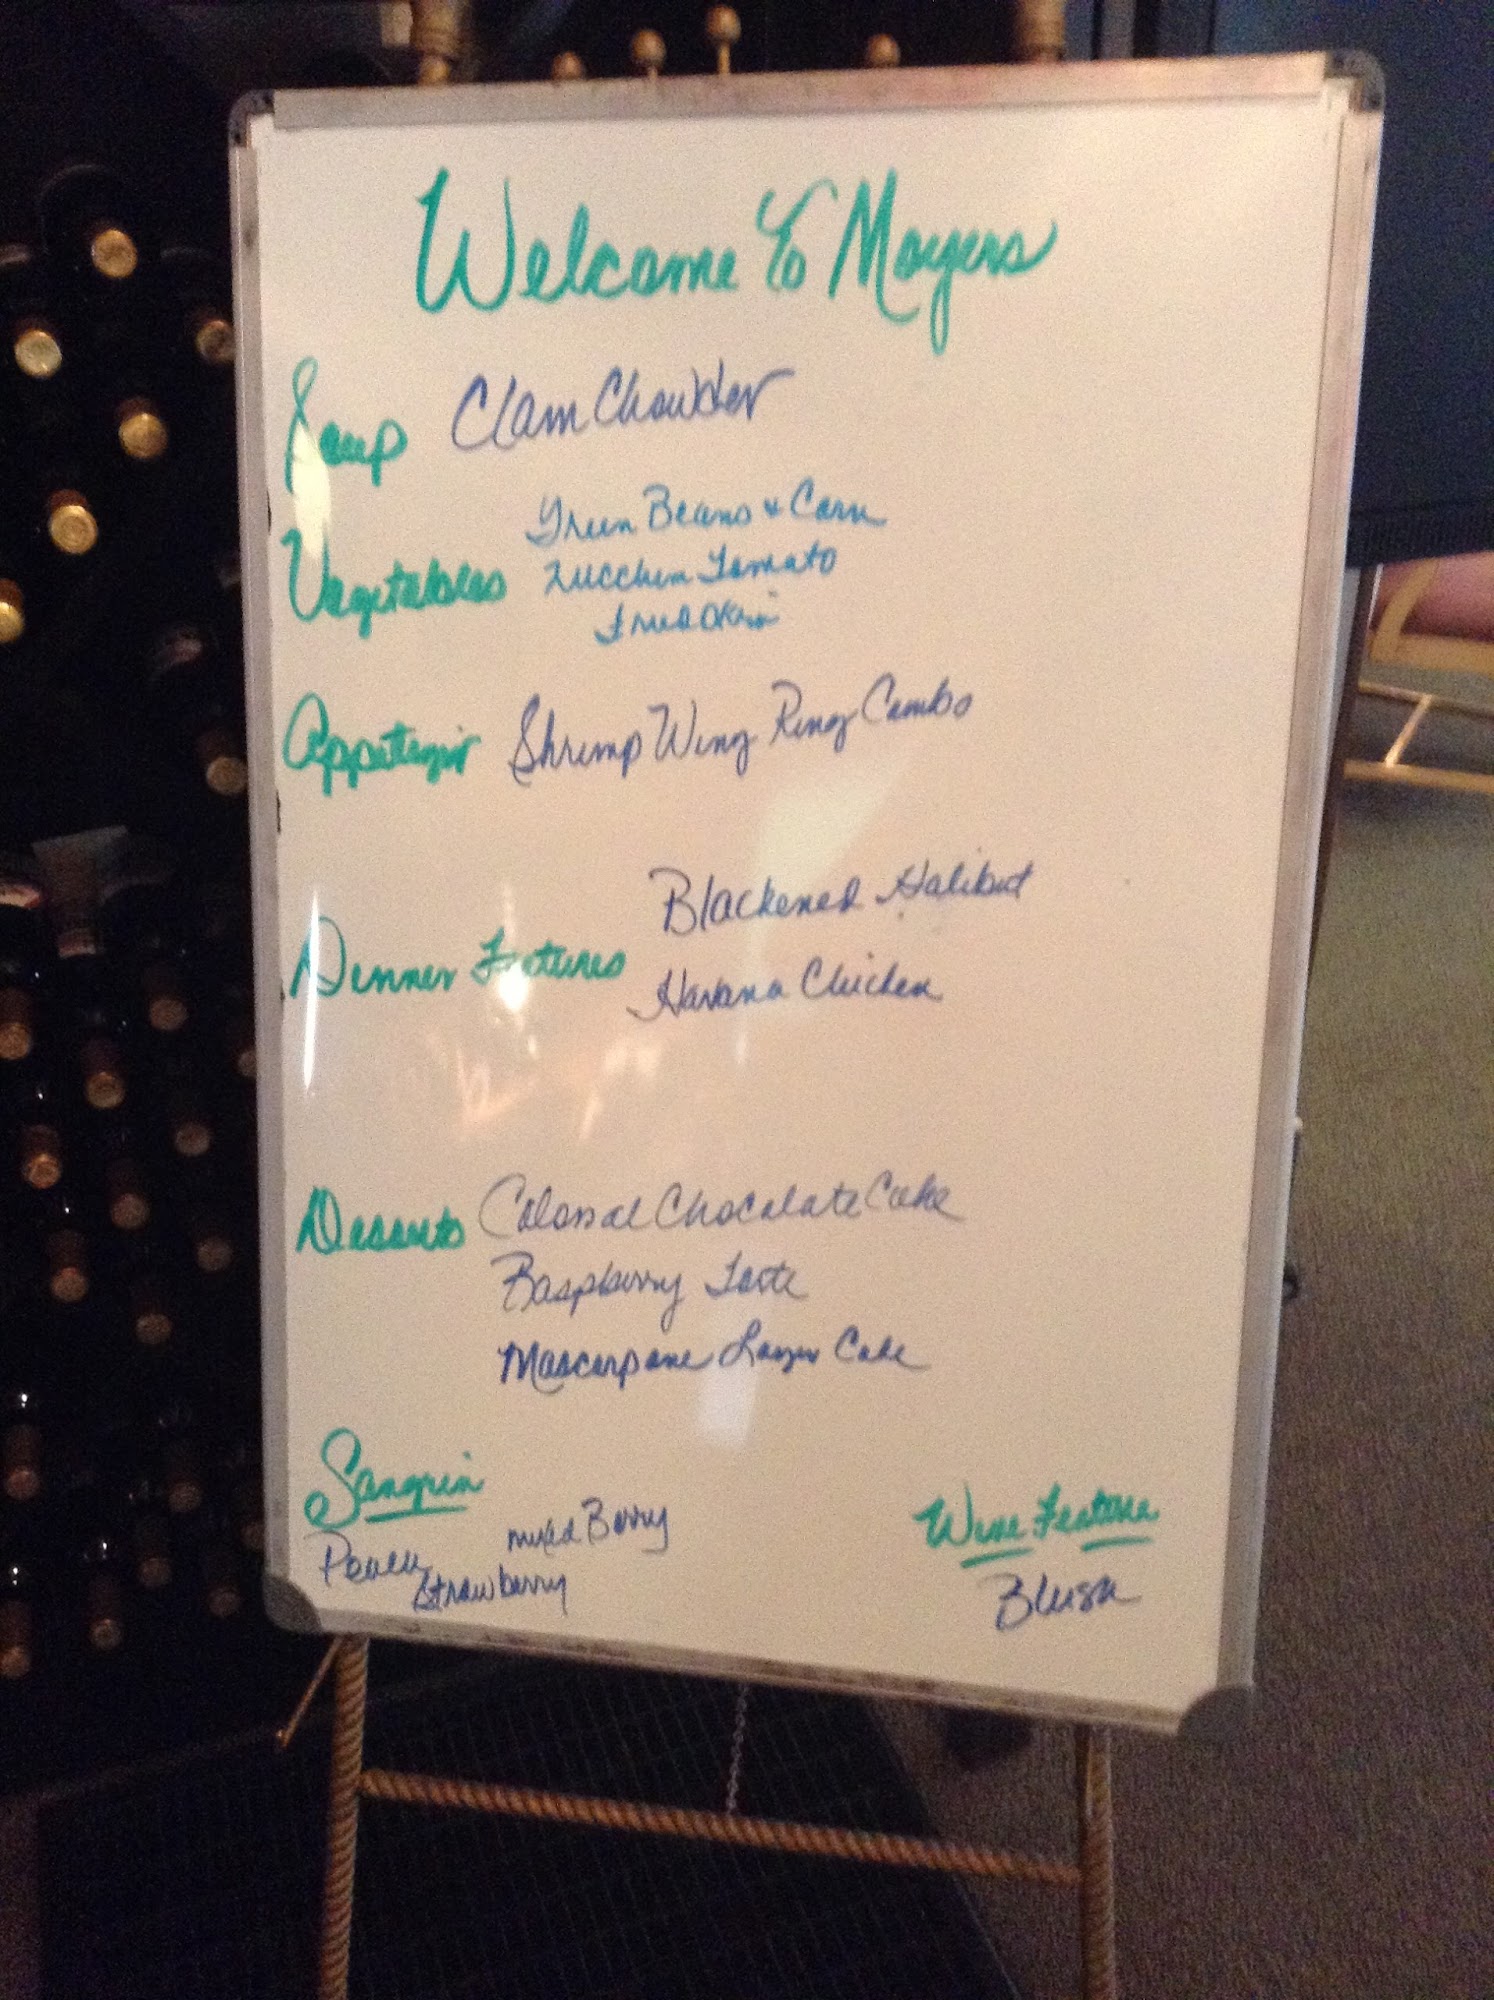 Welcome To Moyers
Soup Clam Chowder
Vegetables Green Beans & Corn
Zucchini Tomato
Fried Okra
Appetizer Shrimp Wing Ring Combo
Dinner Features Blackened Halibut
Havana Chicken
Desserts Colossal Chocolate Cake
Raspberry Torte
Mascarpone Layer Cake
Sangria
Peach
Strawberry
mixed Berry
Wine Feature
Blush